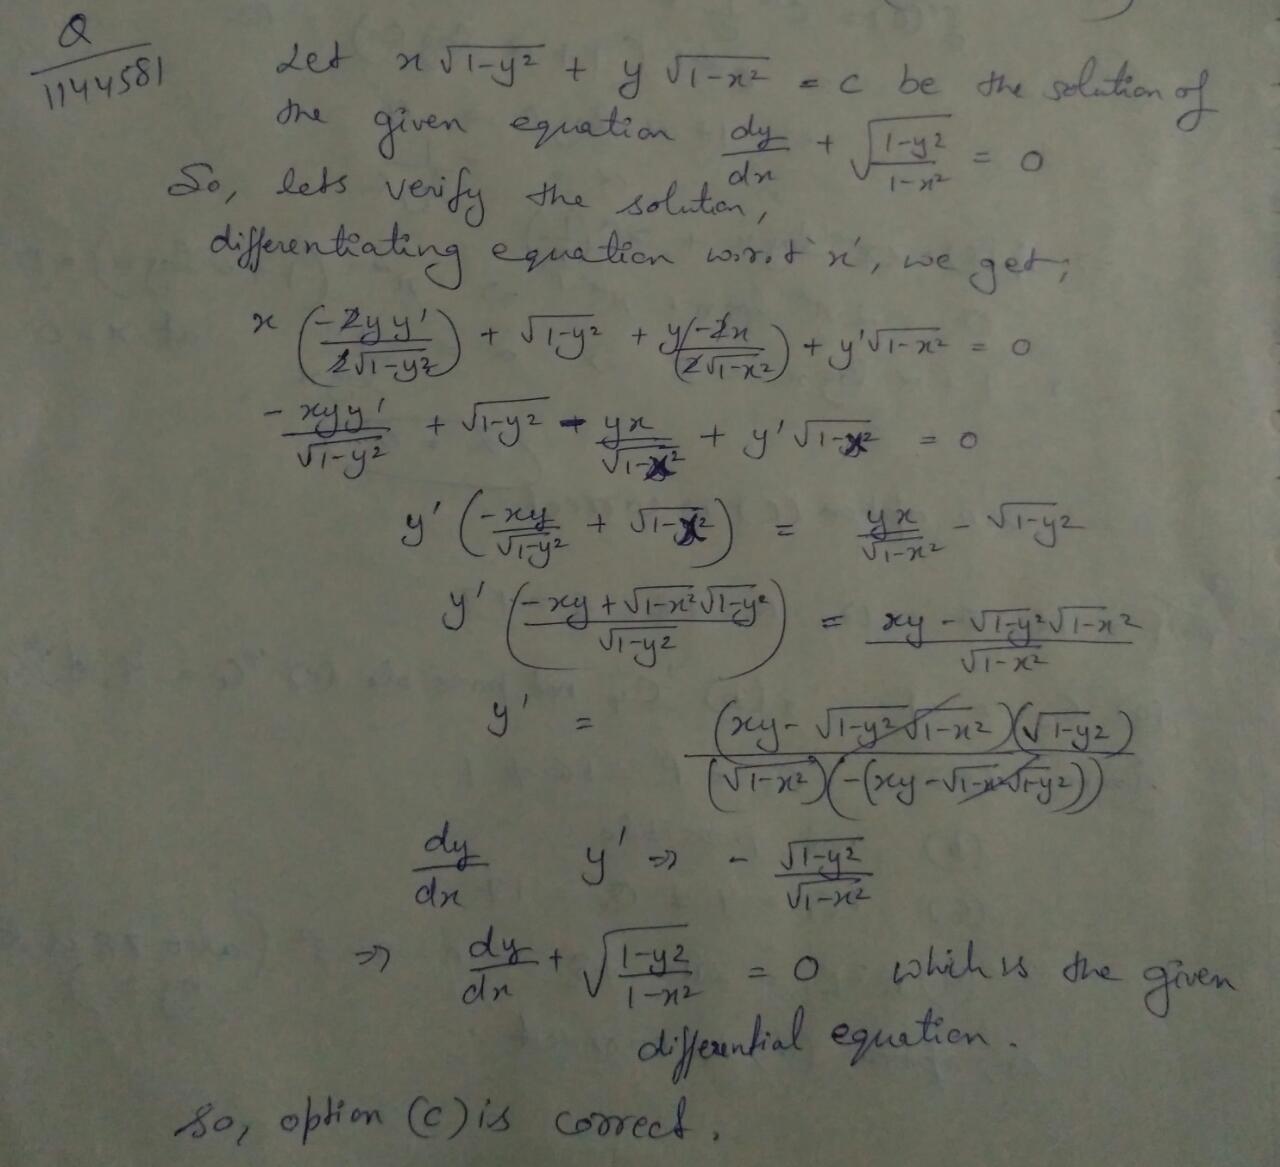 Q
1144581
Let x √1-y² + y √1-x² = c be the solution of
the given equation dy/dx + √(1-y²/1-x²) = 0
So, lets verify the solution,
differentiating equation w.r.t 'x', we get,
x (-2yy'/2√1-y²) + √1-y² + y(-2x/2√1-x²) + y'√1-x² = 0
-xyy'/√1-y² + √1-y² - yx/√1-x² + y'√1-x² = 0
y' (-xy/√1-y² + √1-x²) = yx/√1-x² - √1-y²
y' (-xy + √1-x² √1-y²/√1-y²) = xy - √1-y² √1-x²/√1-x²
y' = (xy - √1-y² √1-x²)(√1-y²)/(√1-x²)(-(xy - √1-x² √1-y²))
dy/dx y' => - √1-y²/√1-x²
=> dy/dx + √(1-y²/1-x²) = 0 which is the given
differential equation.
So, option (c) is correct.